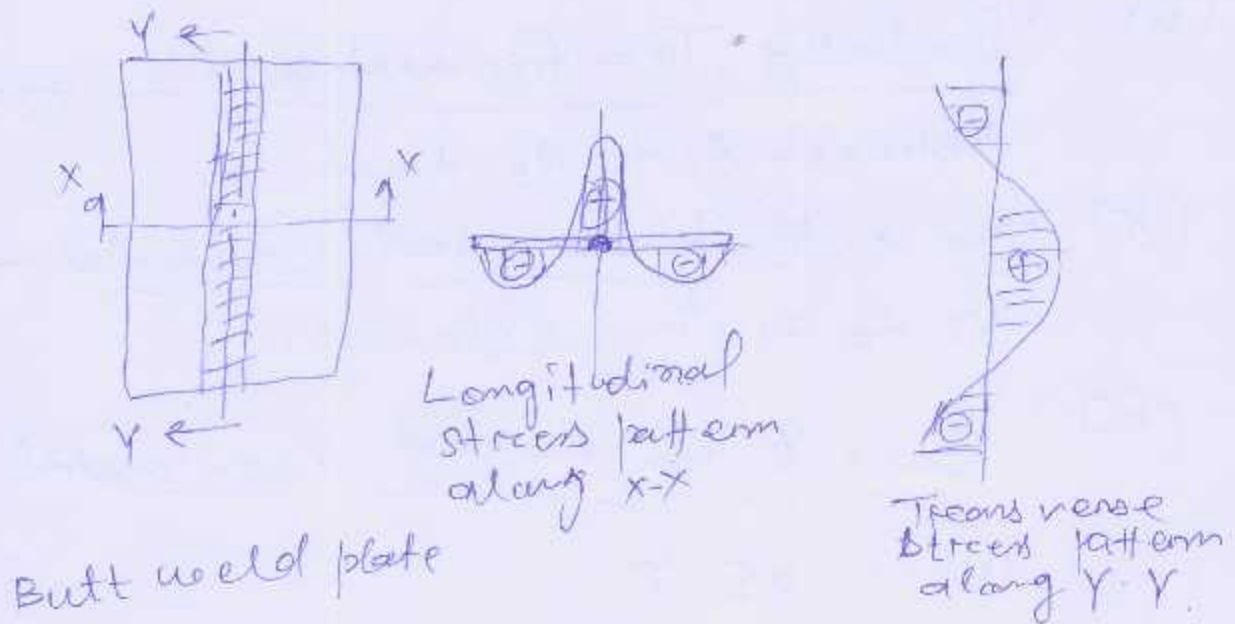 Y
X
X
Y
Butt weld plate
+
-
-
Longitudinal
stress pattern
along X-X
-
+
-
Transverse
stress pattern
along Y-Y.